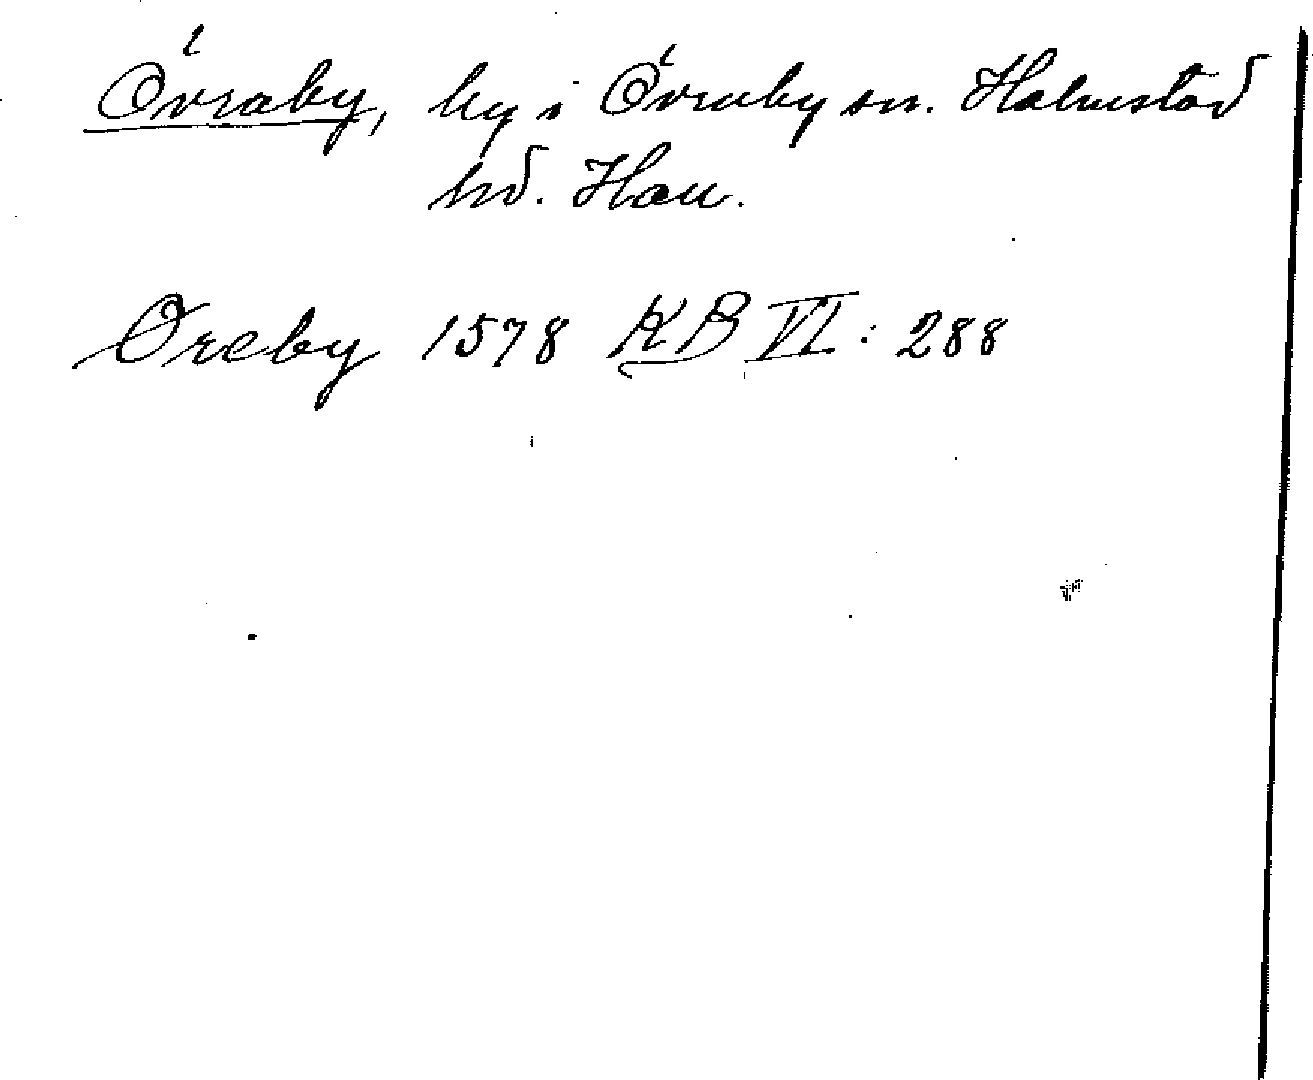 Övraby, by i Övraby sn. Halmstad
hd. Hall.
Øreby 1578 KB VI: 288